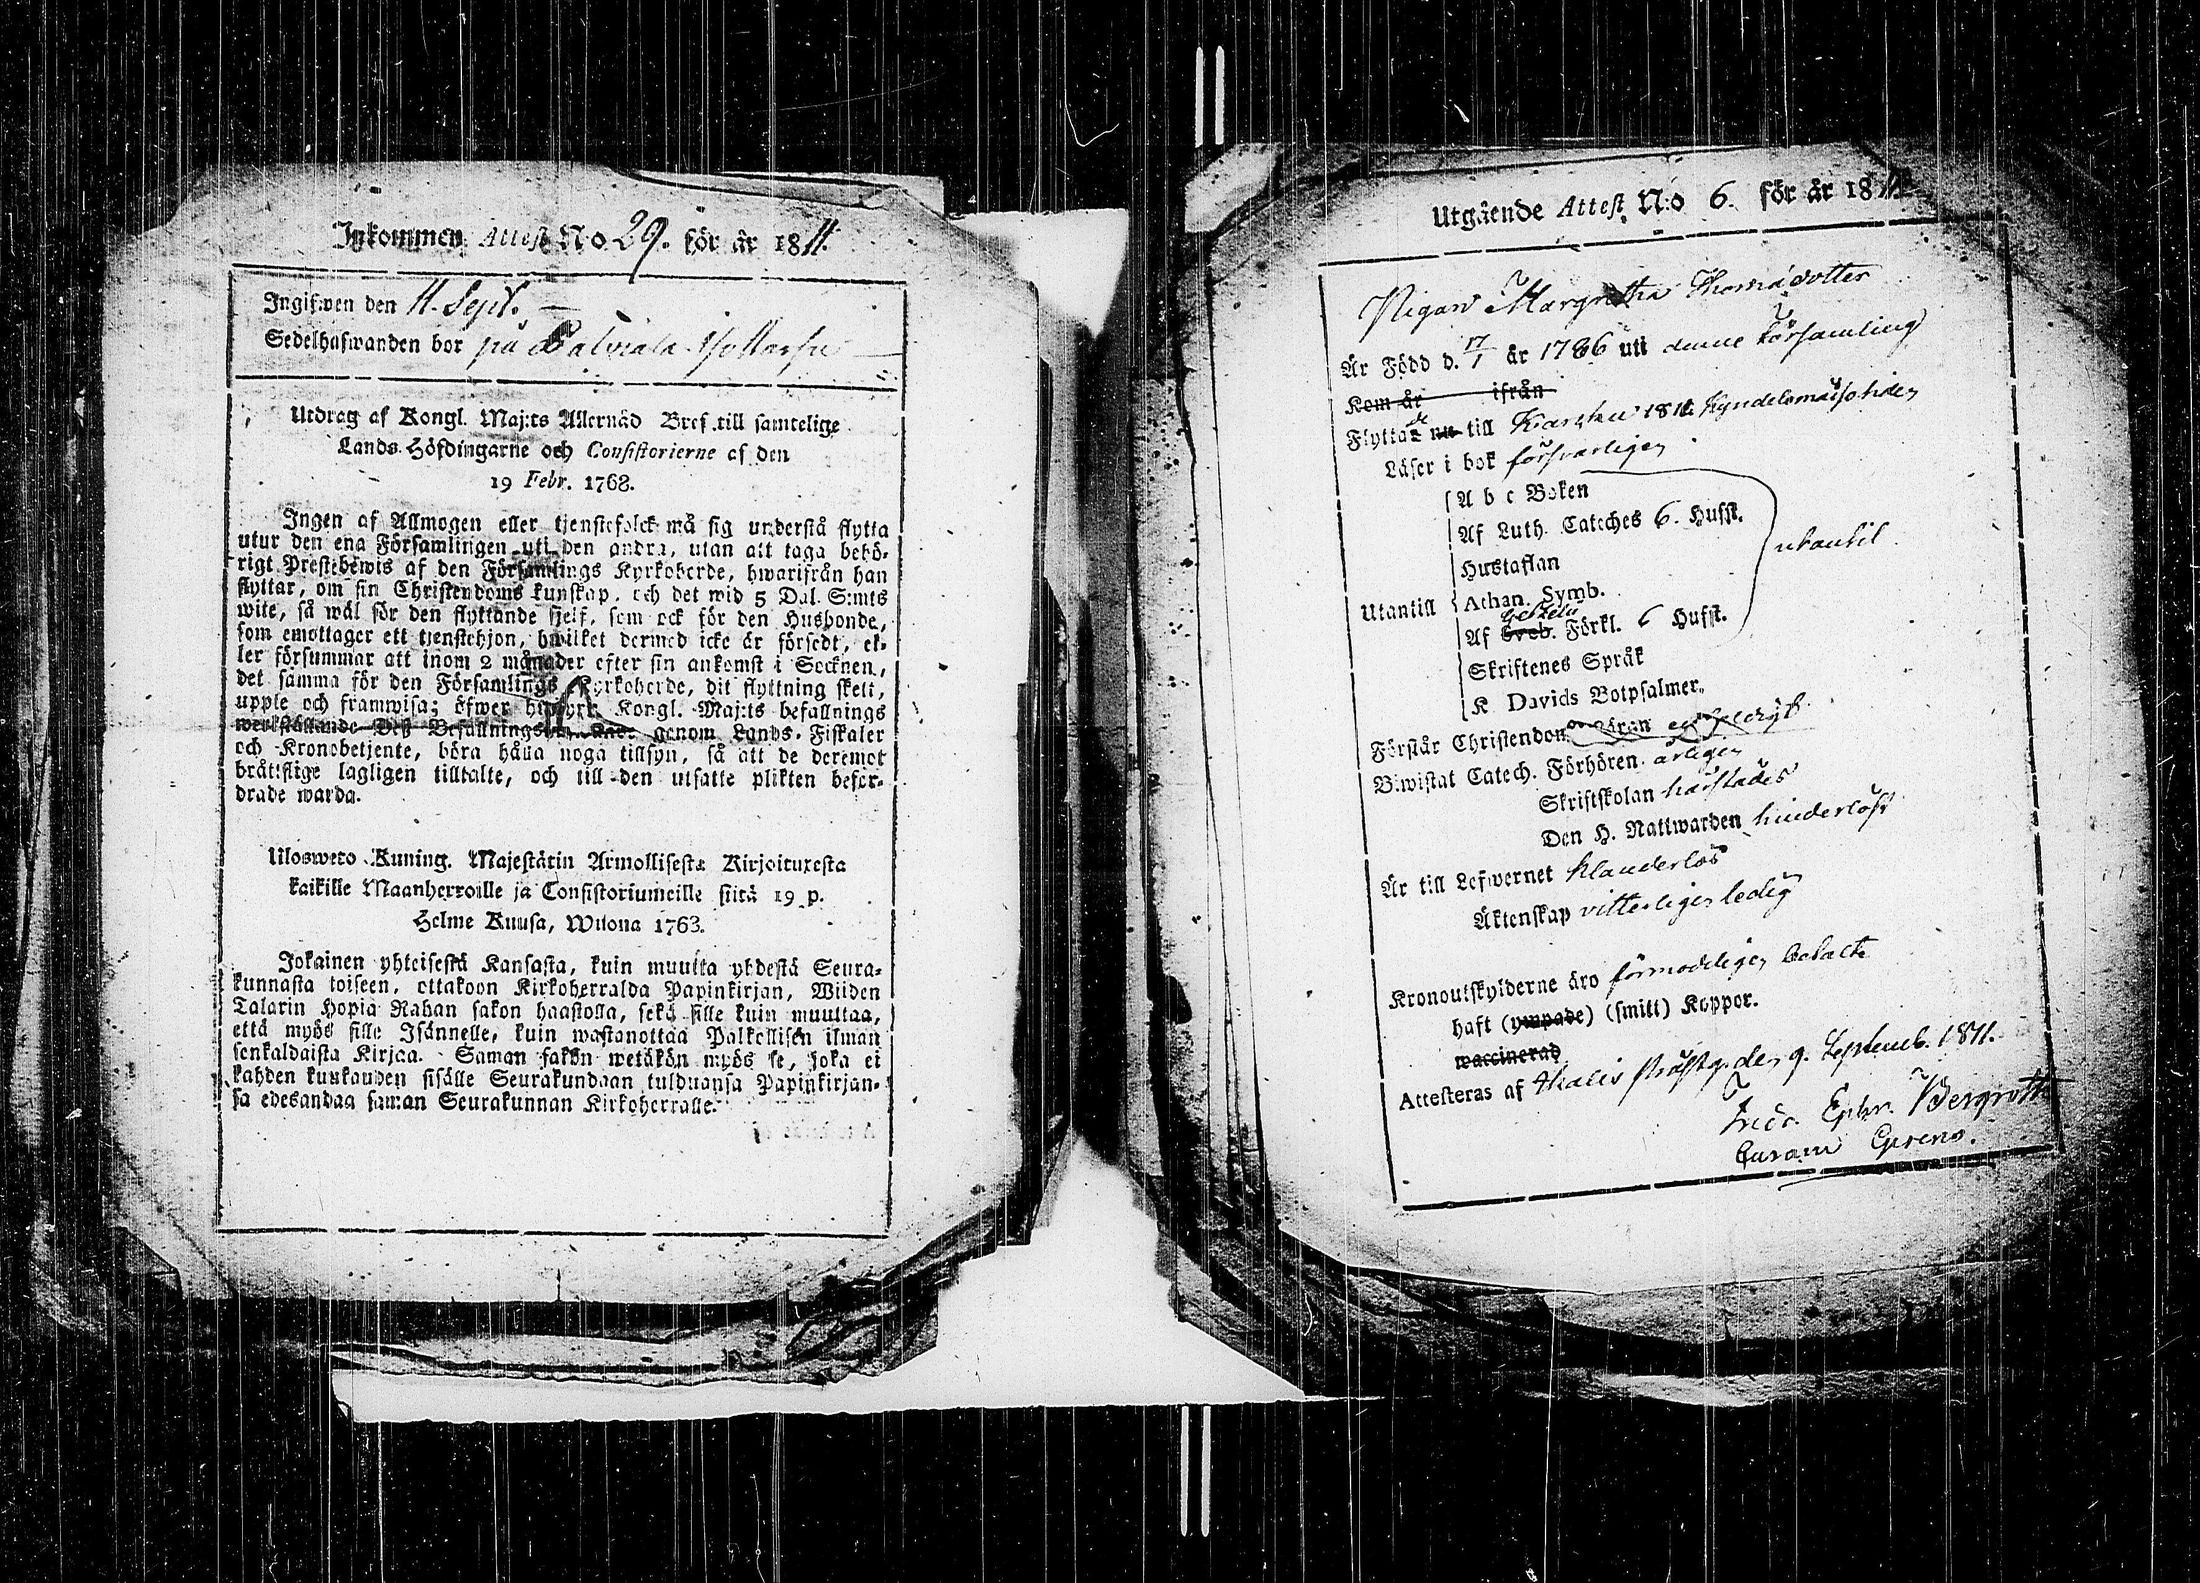 Inkommen Attest No 29. för år 1811.
Ingifwen den 11. Sept.
Sedelhafwanden bor på
Utdrag af Kongl. Maj:ts Allernåd Bref till samtelige
Lands Höfdingarne och Consistorierne af den
19 Febr. 1768.
Ingen af Allmogen eller tjenstefolck må sig understå flytta
utur den ena Församlingen uti den andra, utan att taga behö-
rigt Prestebewis af den Församlings Kyrkoherde, hwarifrån han
flyttar, om sin Christendoms kunskap, och det wid 5 Dal. S:mts
wite, så wäl för den flyttande sjelf, som ock för den Husbonde,
som emottager ett tjenstehjon, hwilket dermed icke är försedt, el-
ler försummar att inom 2 månader efter sin ankomst i Socknen,
det samma för den Församlings Kyrkoherde, dit flyttning skett,
upple och framwisa; öfwer hwars Kongl. Maj:ts befallnings
werkställande Deß Befallnings genom Lands-Fiskaler
och Kronobetjente, böra hålla noga tillsyn, så att de deremot
bråttslige lagligen tilltalte, och till den utsatte plikten befor-
drade warda.
Ulosweto Kuning. Majestätin Armollisesta Kirjoituxesta
kaikille Maanherroille ja Consistoriumeille siitä 19 p.
Helme Kuusa, Wuona 1763.
Jokainen yhteisestä Kansasta, kuin muutta yhdestä Seura-
kunnasta toiseen, ottakoon Kirkoherralda Papinkirjan, Wiiden
Talarin Hopia Rahan sakon haastolla, sekä sille kuin muuttaa,
että myös sille Isännelle, kuin wastanottaa Palkollisen ilman
senkaldaista Kirjaa. Saman sakon wetäkön myös se, joka ei
kahden kuukauden sisälle Seurakundaan tulduansa Papinkirjan-
sa edesandaa saman Seurakunnan Kirkoherralle.
Utgående Attest N:o 6. för år 1811
Pigan Margretha Thomasdotter
Är Född d. 17/1 år 1786 uti denne Församling
Kom år ifrån
Flyttade nu till Karsku 1811 Kyndelsmässotiden
Läser i bok försvarligen
A b c Boken
Af Luth. Cateches 6. Hufst.
Hustaflan
utantil
Utantill
Athan. Symb.
Af Sveb. Förkl. 6 Hufst.
Skriftenes Språk
K Davids Botpsalmer.
Förstår Christendoms
Biwistat Catech. Förhören årligen
Skriftskolan härstädes
Den H. Nattwarden hinderlöst
Är till Lefwernet klanderlös
Äktenskap vitterligen ledig
Kronoutskylderne äro förmodeligen betalte
haft (ympade) (smitt) Koppor.
waccinerad
Attesteras af Thalis Prästg. den 9. Septemb. 1811.
Fredr. Ephr. Bergroth